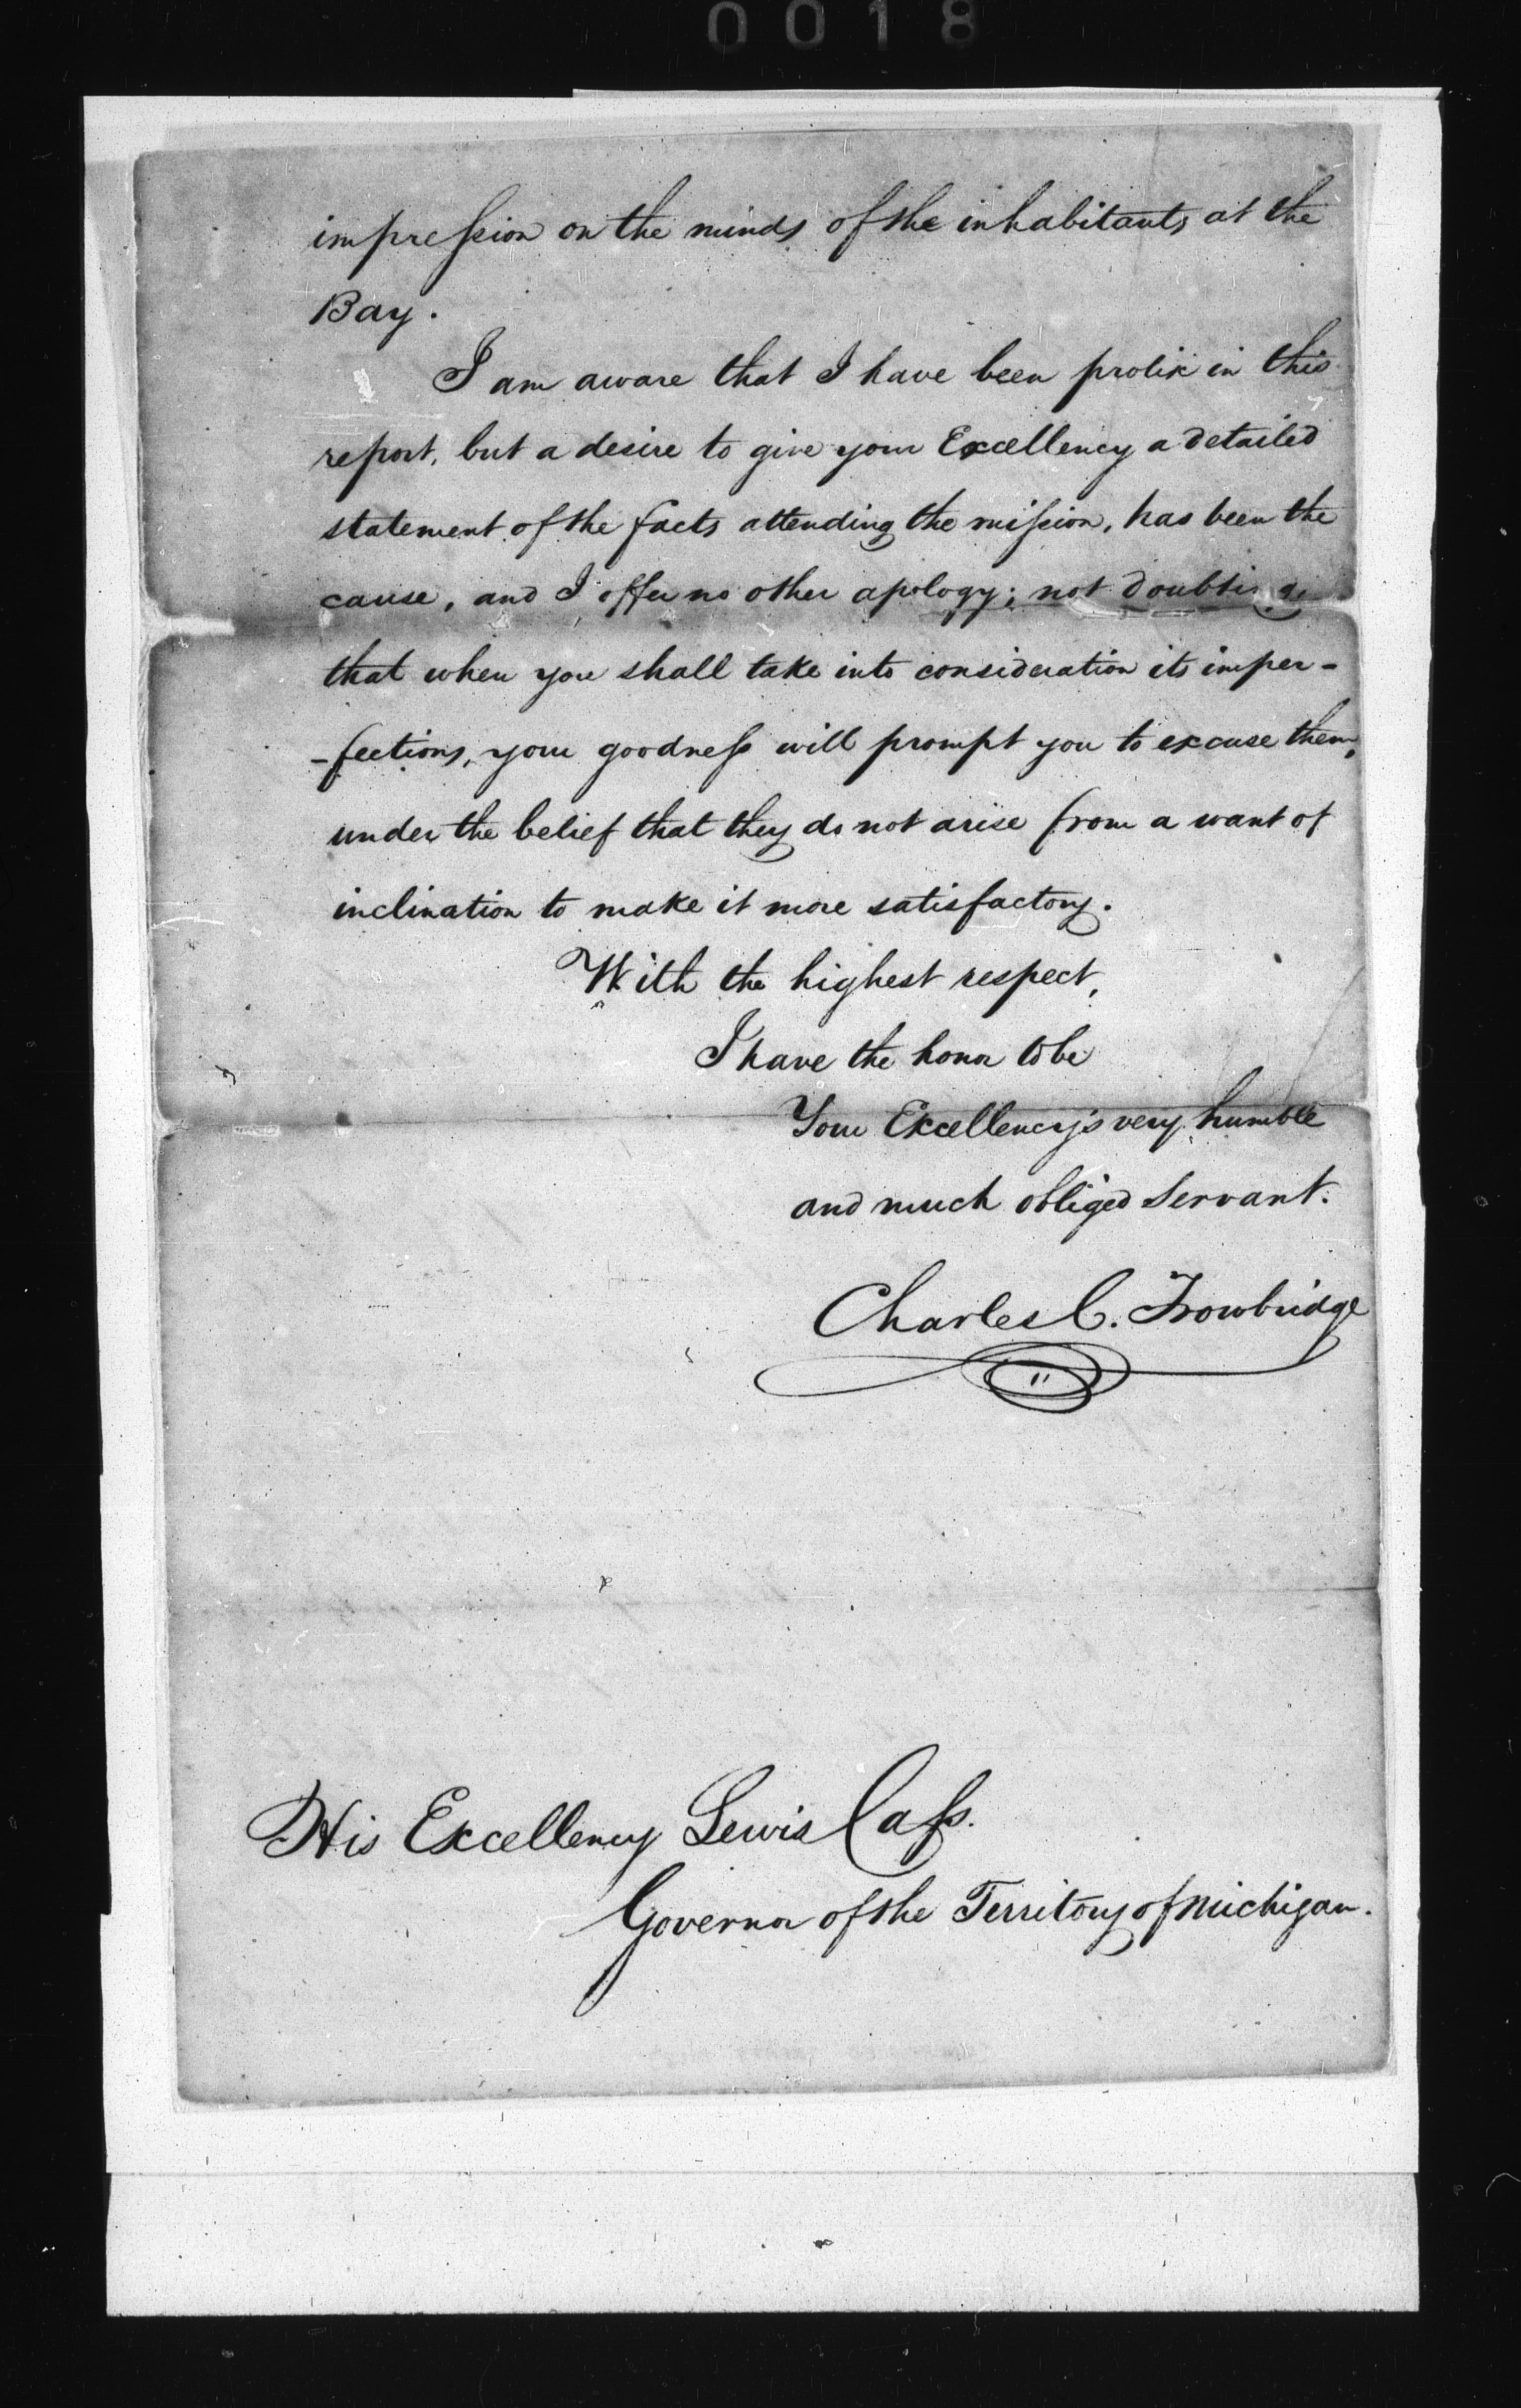 0018
impression on the minds of the inhabitants at the
Bay.
I am aware that I have been prolix in this
report, but a desire to give your Excellency a detailed
statement of the facts attending the mission, has been the
cause, and I offer no other apology; not doubting
that when you shall take into consideration its imper-
-fections, your goodness will prompt you to excuse them,
under the belief that they do not arise from a want of
inclination to make it more satisfactory.
With the highest respect,
I have the honor to be
Your Excellency's very humble
and much obliged Servant.
Charles C. Trowbridge
His Excellency Lewis Cass.
Governor of the Territory of Michigan.